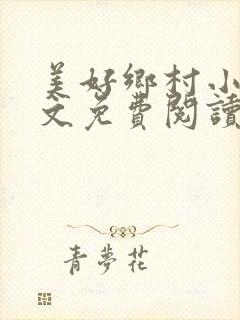 美好鄉村小
文免費閱讀
青夢花